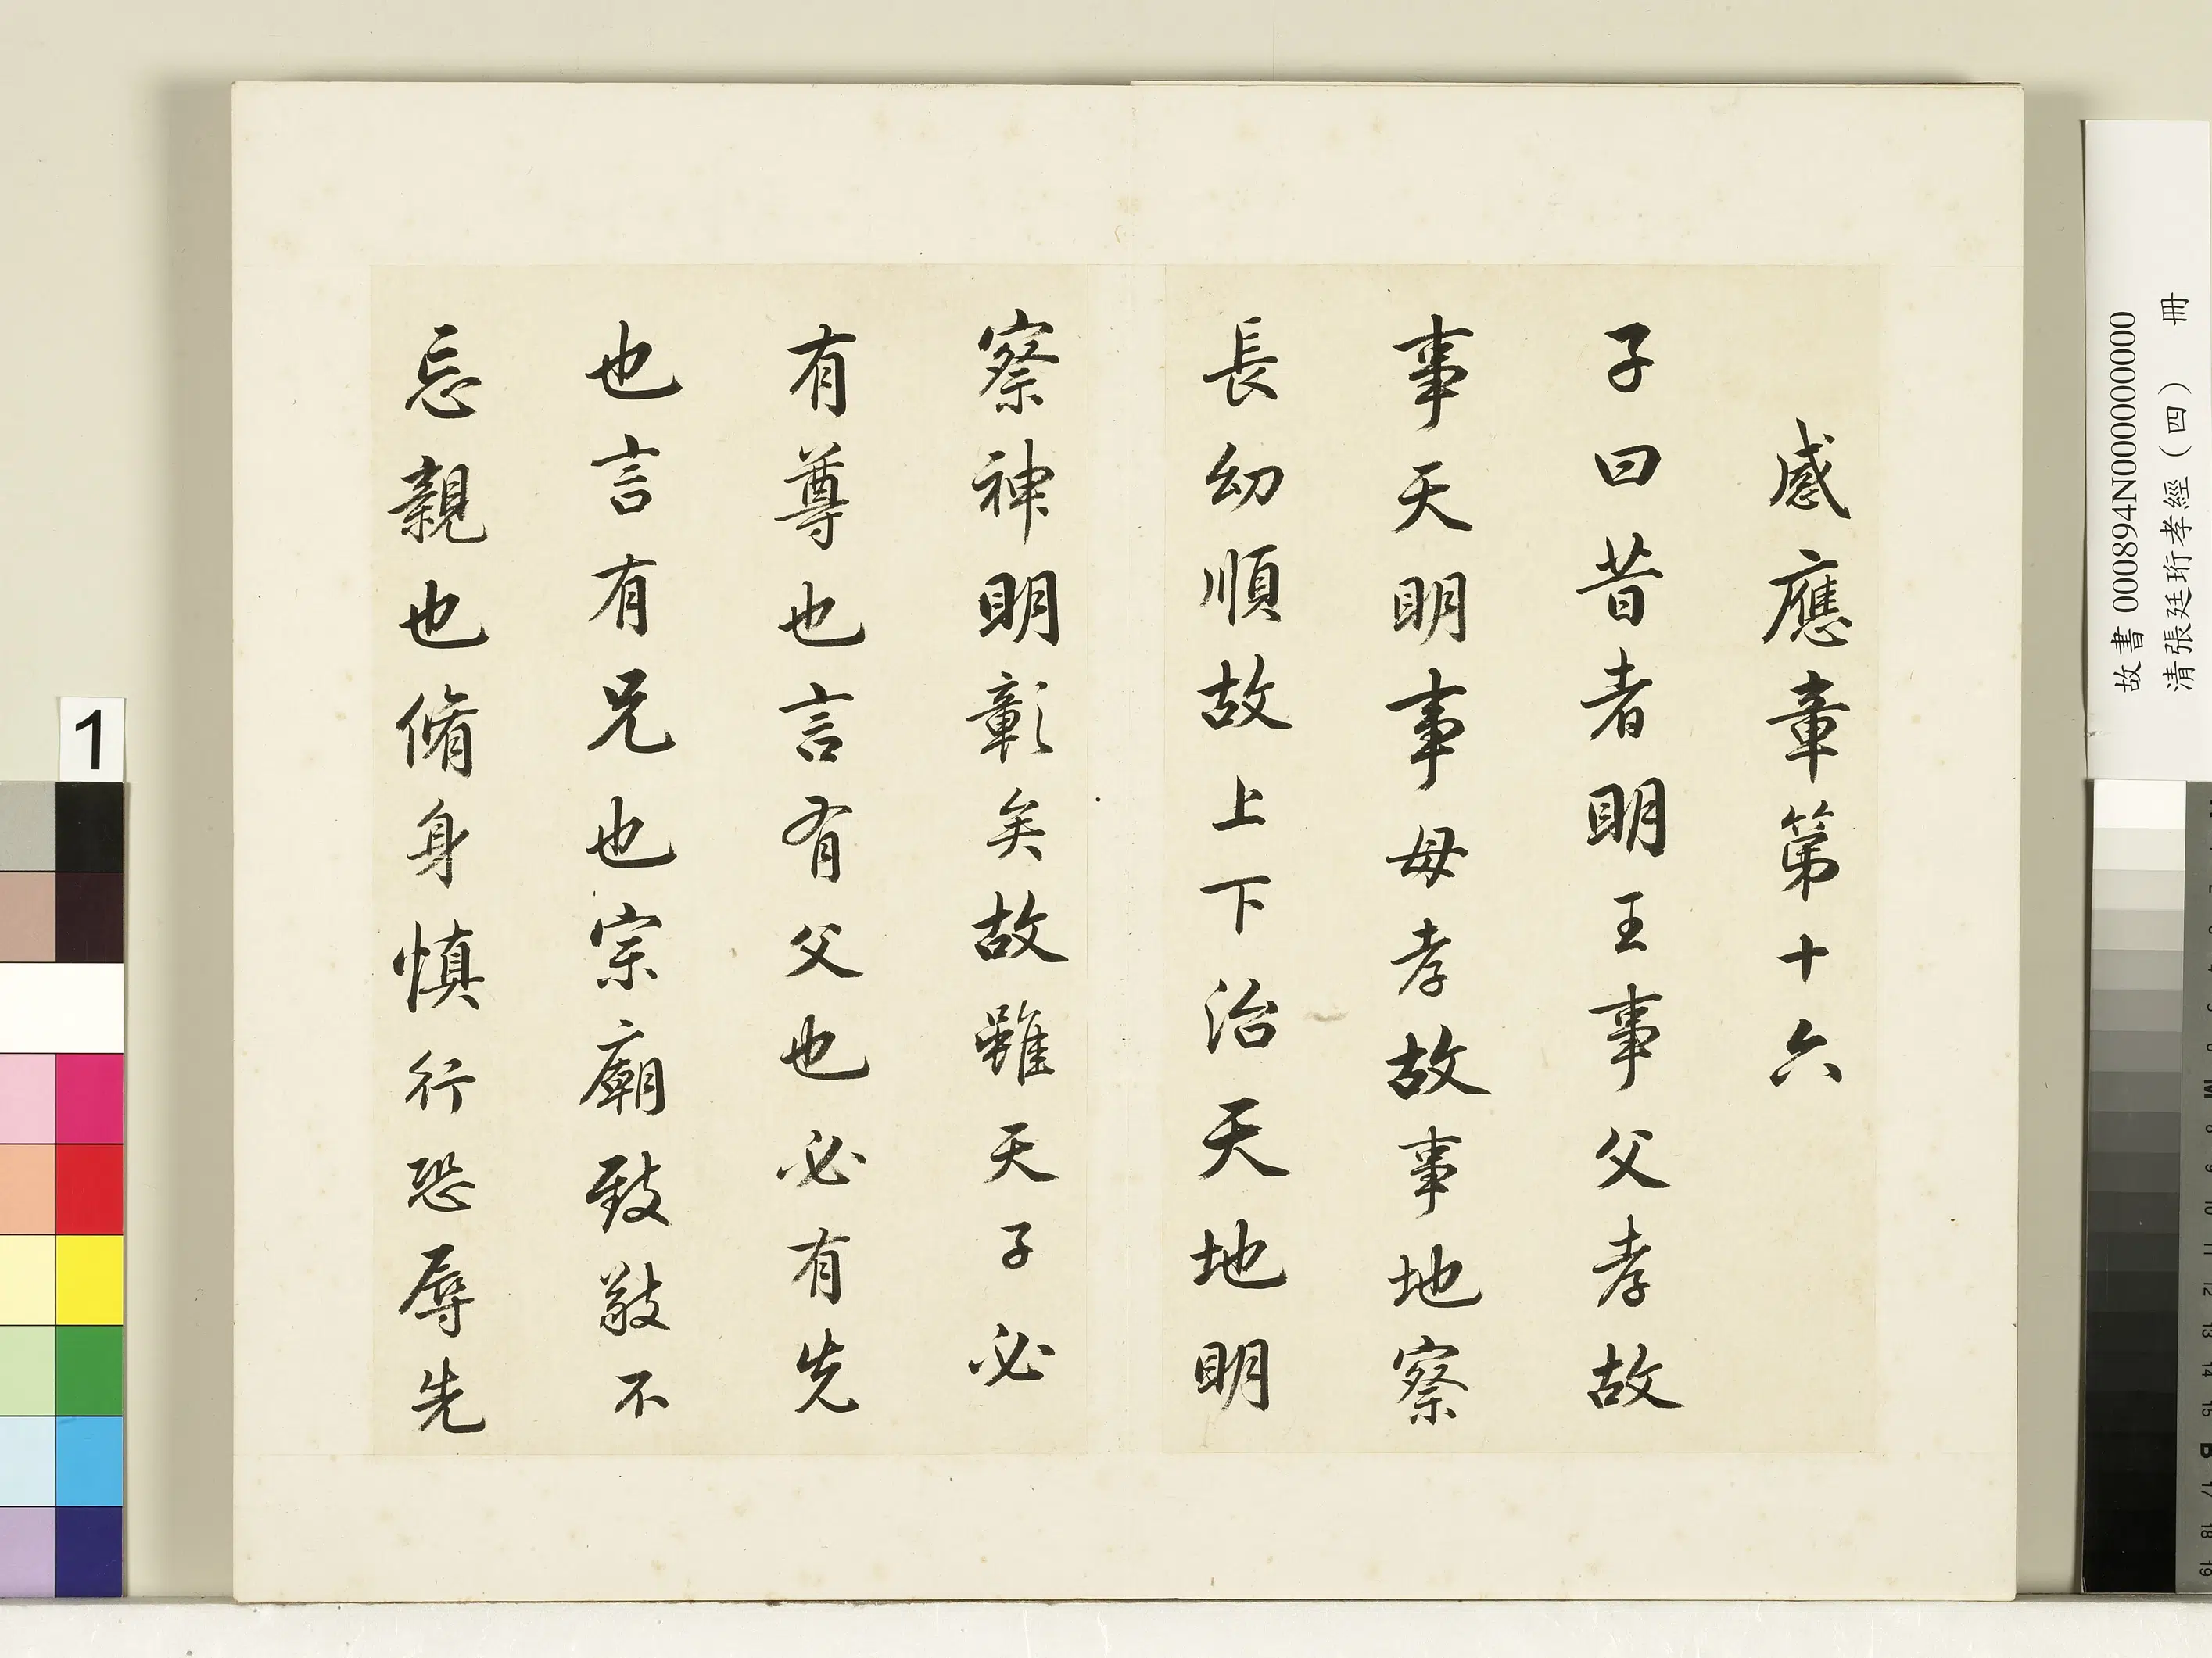 感應章第十六
子曰昔者明王事父孝故
事天明事母孝故事地察
長幼順故上下治天地明
察神明彰矣故雖天子必
有尊也言有父也必有先
也言有兄也宗廟致敬不
忘親也脩身慎行恐辱先
故書 000894N000000000
清張廷珩孝經（四） 冊
1